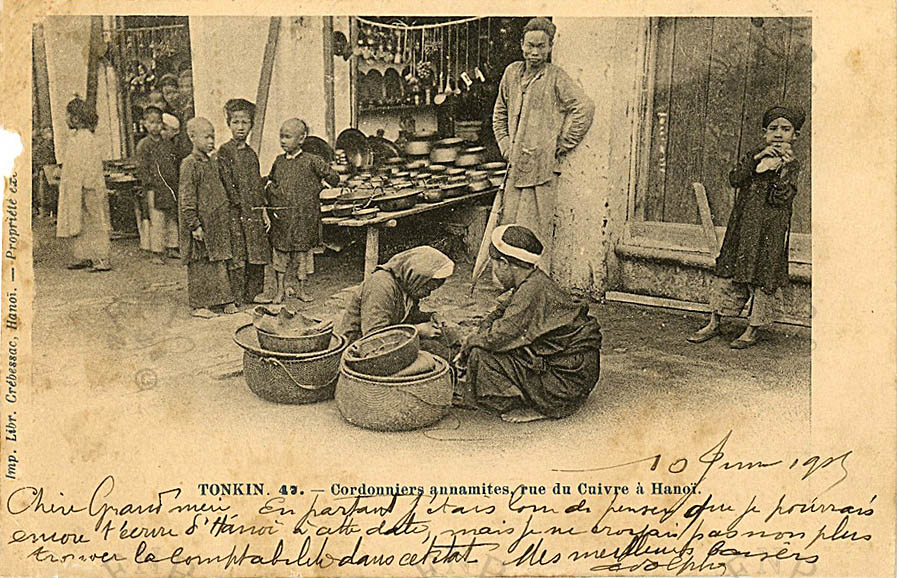 Imp. Libr. Crébessac, Hanoï. — Propriété ex
TONKIN. 47. — Cordonniers annamites, rue du Cuivre à Hanoï.
10 Juin
Chère Grand'mère. En partant j'étais loin de penser que je pourrais
encore t'écrire d'Hanoï à cette date, mais je ne croyais pas non plus
trouver la comptabilité dans cet état Mes meilleurs baisers
Adolphe